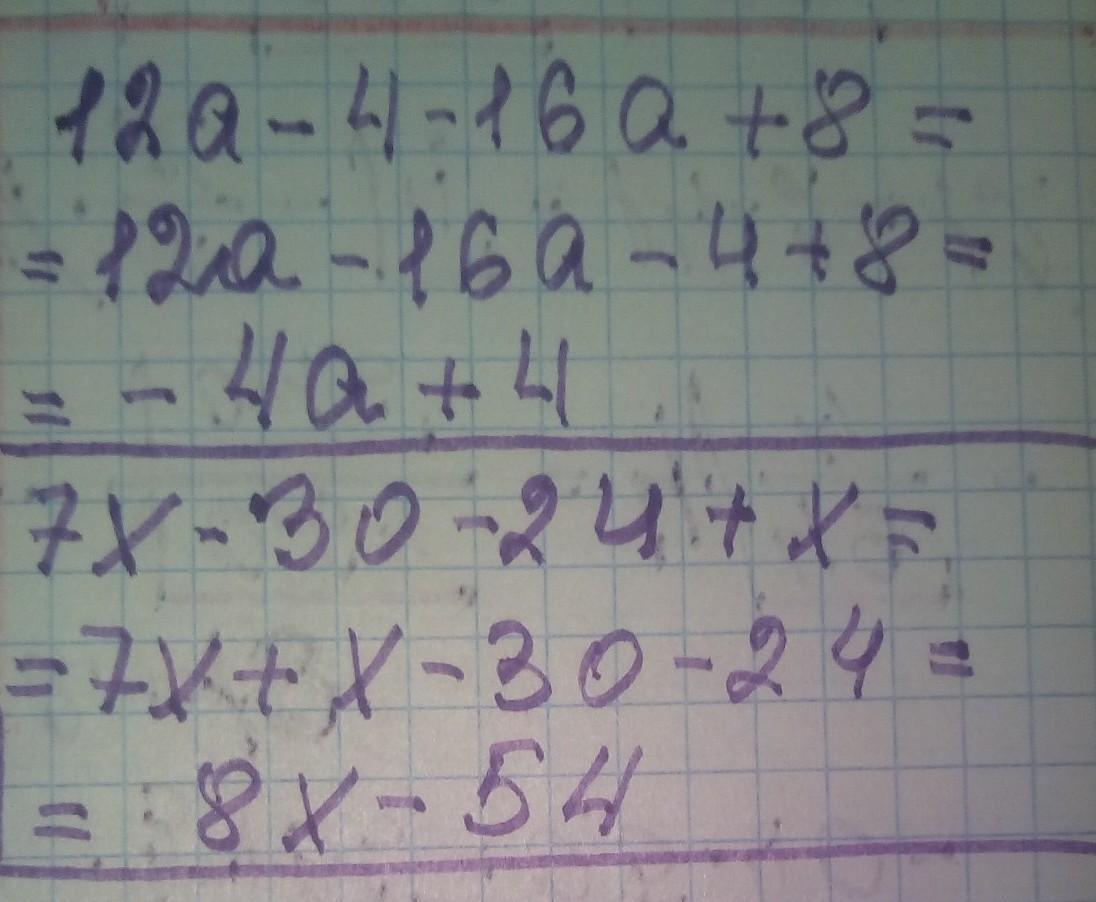 12a - 4 - 16a + 8 =
= 12a - 16a - 4 + 8 =
= - 4a + 4
7x - 30 - 24 + x =
= 7x + x - 30 - 24 =
= 8x - 54